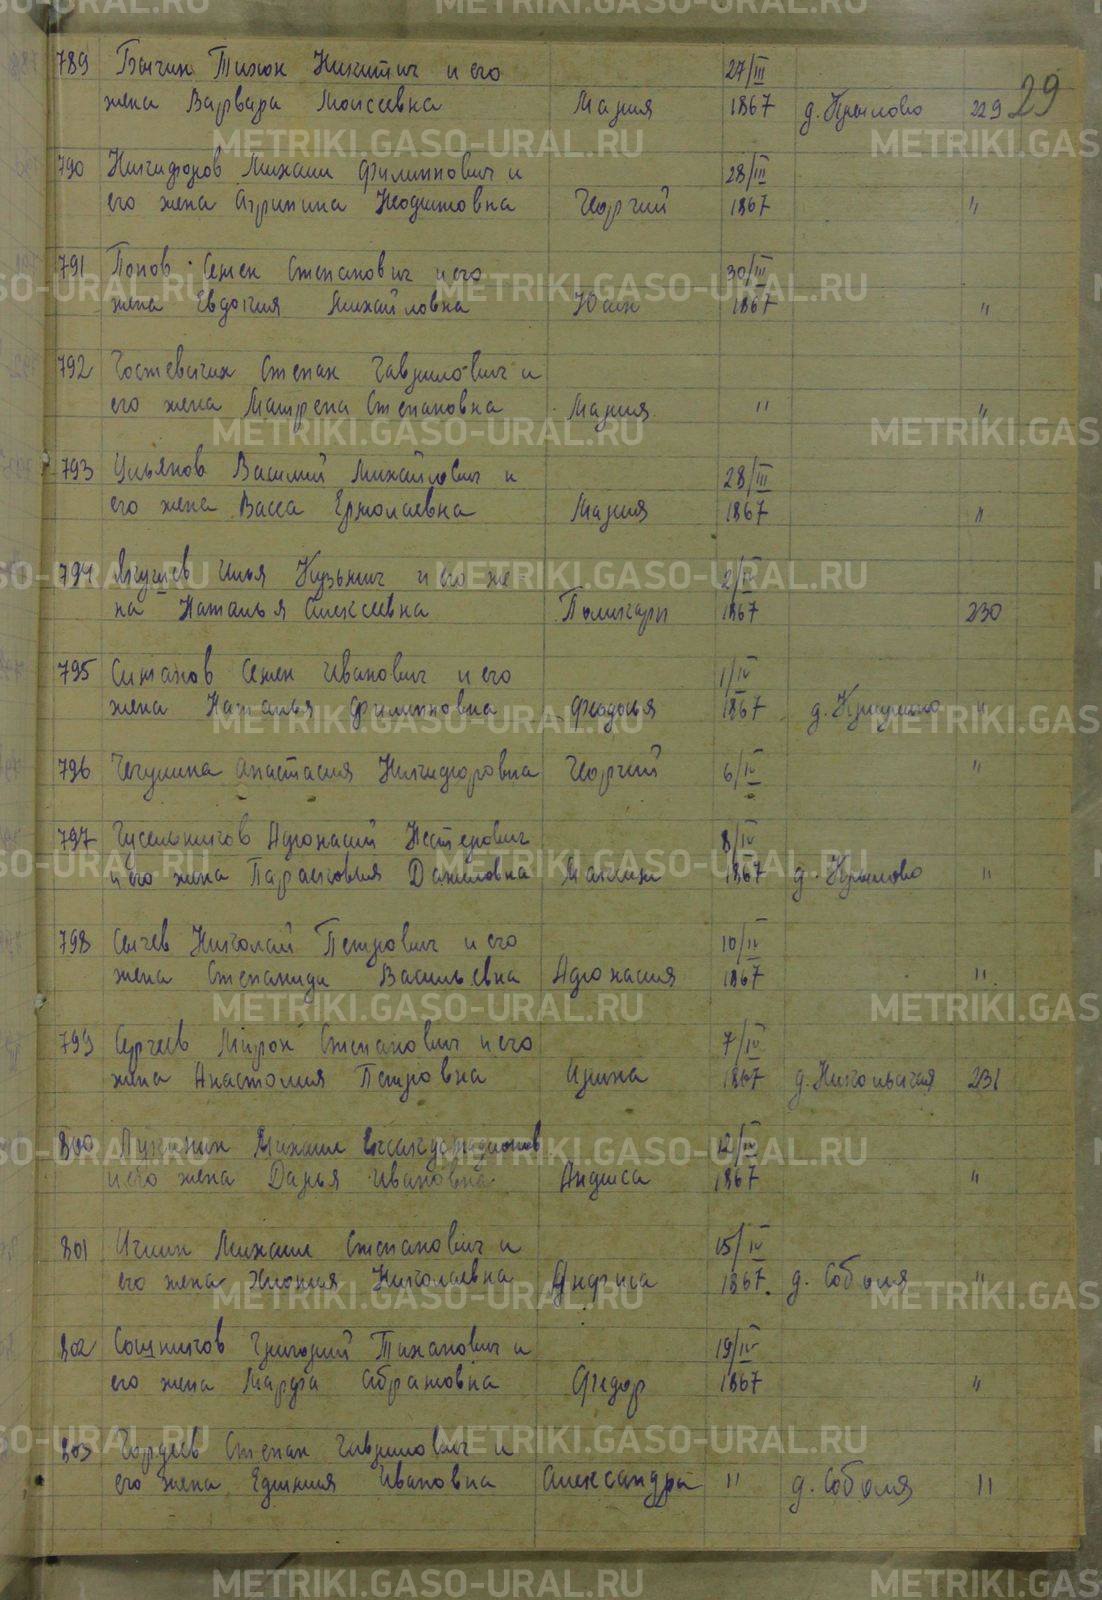 29
789 Бычин Тихон Никитич и его 27/III
жена Варвара Моисеевна Мария 1867 д. Крылово 229
790 Никифоров Михаил Филиппович и 28/III
его жена Агрипина Неофитовна Георгий 1867 "
791 Попов Семен Степанович и его 30/III
жена Евдокия Михайловна Юлия 1867 "
792 Степан Гаврилович и
его жена Матрена Степановна Мария " "
793 Ульянов Василий Михайлович и 28/III
его жена Васса Ермолаевна Мария 1867 "
794 Илья Кузьмич и его же- 2/IV
на Наталья Алексеевна Поликарп 1867 230
795 Ситанов Семен Иванович и его 1/IV
жена Наталья Филипповна Феодосья 1867 д. "
796 Чекулина Анастасия Никифоровна Георгий 6/IV "
797 Гусельников Афонасий Нестерович 8/IV
и его жена Парасковья Даниловна Максим 1867 д. Крылово "
798 Сычев Николай Петрович и его 10/IV
жена Степанида Васильевна Афонасия 1867 "
799 Сергеев Мирон Степанович и его 7/IV
жена Анастасия Петровна Ирина 1867 д. Никольская 231
800 Лукинин Михаил 12/IV
и его жена Дарья Ивановна Анфиса 1867 "
801 Михаил Степанович и 15/IV
его жена Хиония Николаевна Анфиса 1867. д. Соболя "
802 Сошников Григорий Тиханович и 19/IV
его жена Марфа Абрамовна Федор 1867 "
803 Гордеев Степан Гаврилович и
его жена Ефимия Ивановна Александра " д. Соболя "
METRIKI.GASO-URAL.RU